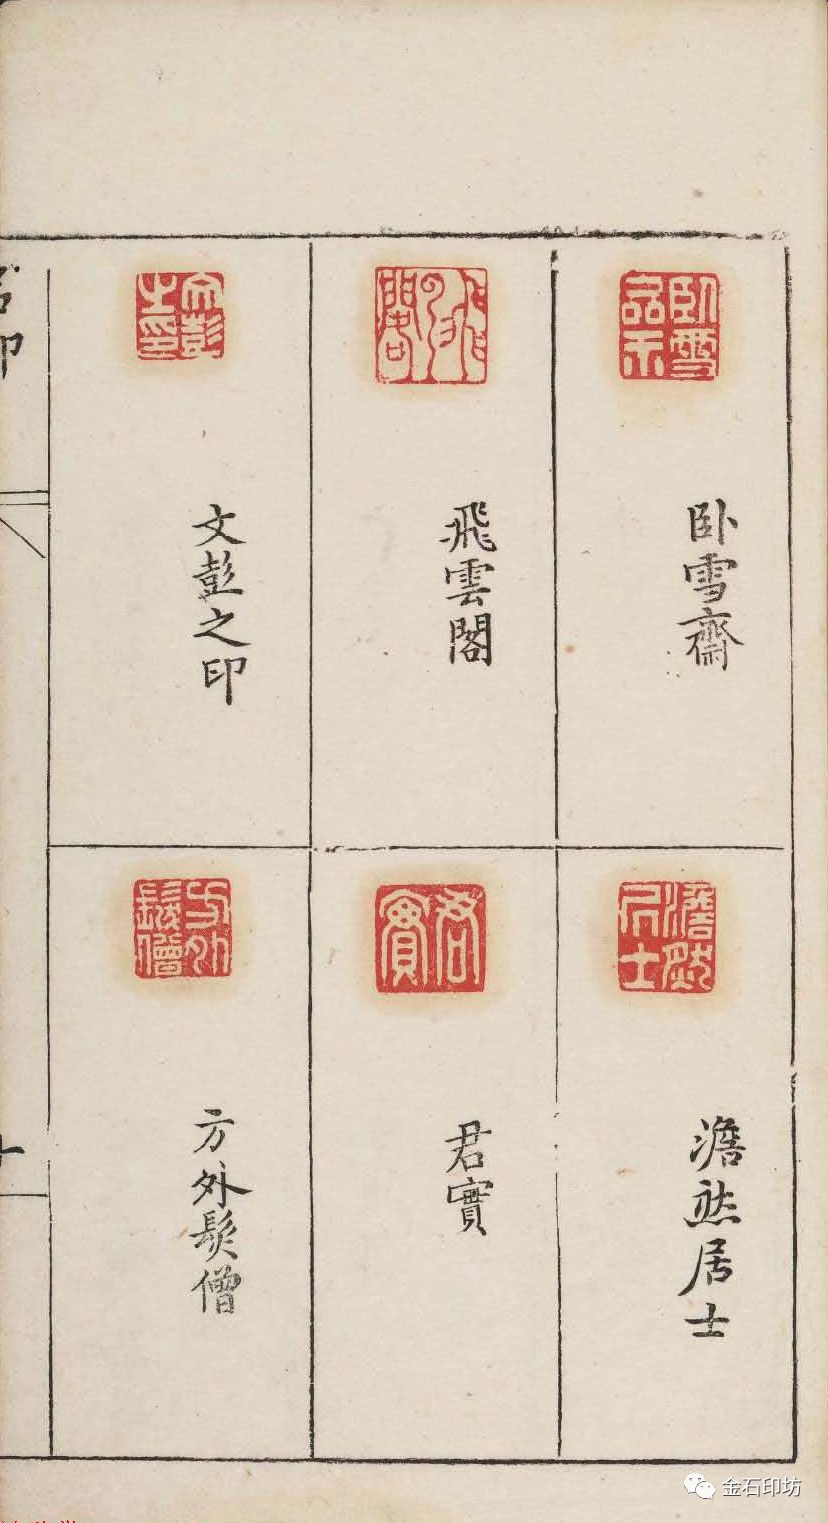 卧雪齋
飛雲閣
文彭之印
澹然居士
君實
方外髮僧
金石印坊